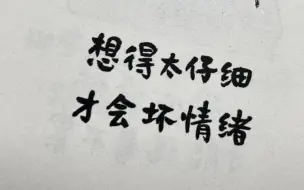 想得太仔细
才会坏情绪